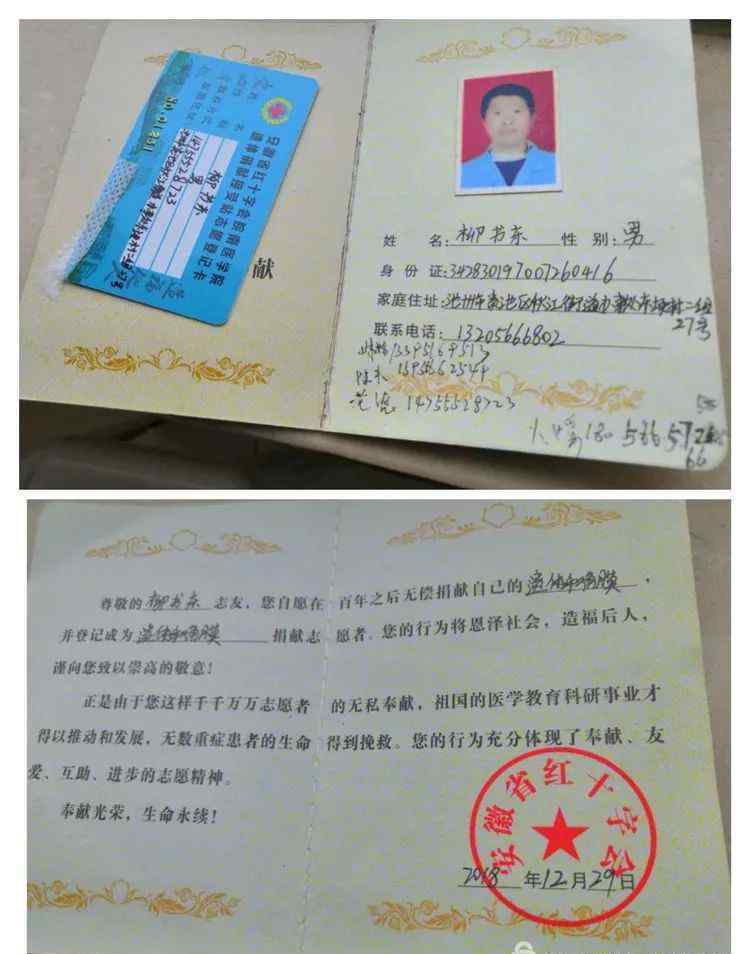 安徽省红十字会皖南医学院
遗体捐献接受站志愿登记卡
柳书东
男
14755528723
献
姓 名:柳书东 性 别:男
身 份 证:342830197007260416
家庭住址:池州市贵池区秋江街道办
27号
联系电话:13205666802
14755528723
尊敬的柳书东志友,您自愿在百年之后无偿捐献自己的遗体和角膜,
并登记成为遗体和角膜捐献志愿者。您的行为将恩泽社会,造福后人,
谨向您致以崇高的敬意!
正是由于您这样千千万万志愿者的无私奉献,祖国的医学教育科研事业才
得以推动和发展,无数重症患者的生命得到挽救。您的行为充分体现了奉献、友
爱、互助、进步的志愿精神。
奉献光荣,生命永续!
安徽省红十字会
2018年12月29日